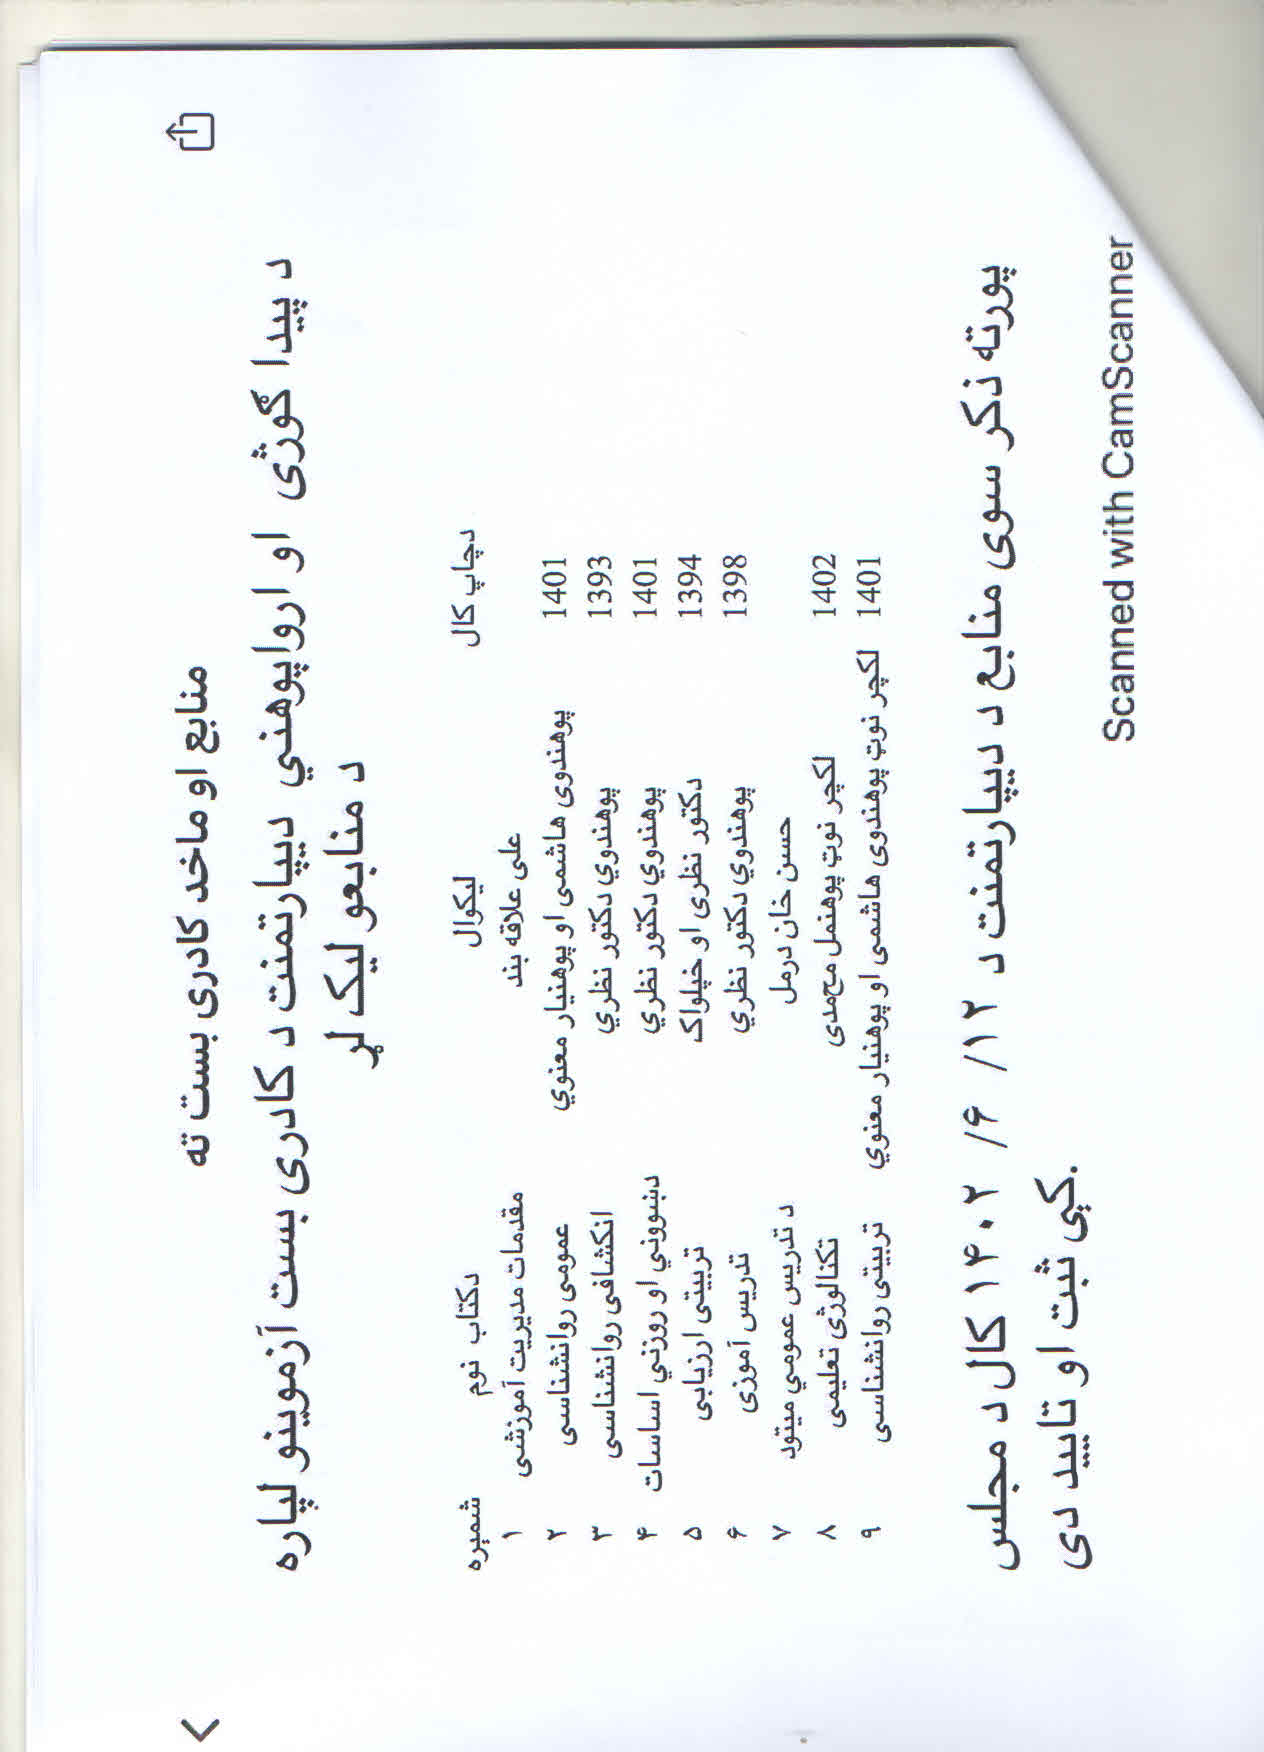 منابع او ماخد کادری بست ته
د پیدا ګوژی او ارواپوهنې دیپارتمنت د کادری بست آزموینو لپاره
د منابعو لیک لړ
شمېره دکتاب نوم لیکوال دچاپ کال
۱ مقدمات مدیریت آموزشی علی علاقه بند
۲ عمومی روانشناسی پوهندوی هاشمی او پوهنیار معنوي 1401
۳ انکشافی روانشناسی پوهندوي دکتور نظري 1393
۴ دښووني او روزني اساسات پوهندوي دکتور نظري 1401
۵ تربیتی ارزیابی دکتور نظری او خپلواک 1394
۶ تدریس آموزی پوهندوي دکتور نظري 1398
۷ د تدریس عمومي میتود حسن خان درمل
۸ تکنالوژی تعلیمی لکچر نوټ پوهنمل محمدی 1402
۹ تربیتی روانشناسی لکچر نوټ پوهندوی هاشمی او پوهنیار معنوي 1401
پورته ذکر سوی منابع د دیپارتمنت د ۱۲/ ۶/ ۱۴۰۲ کال د مجلس
کي ثبت او تایید دی.
Scanned with CamScanner